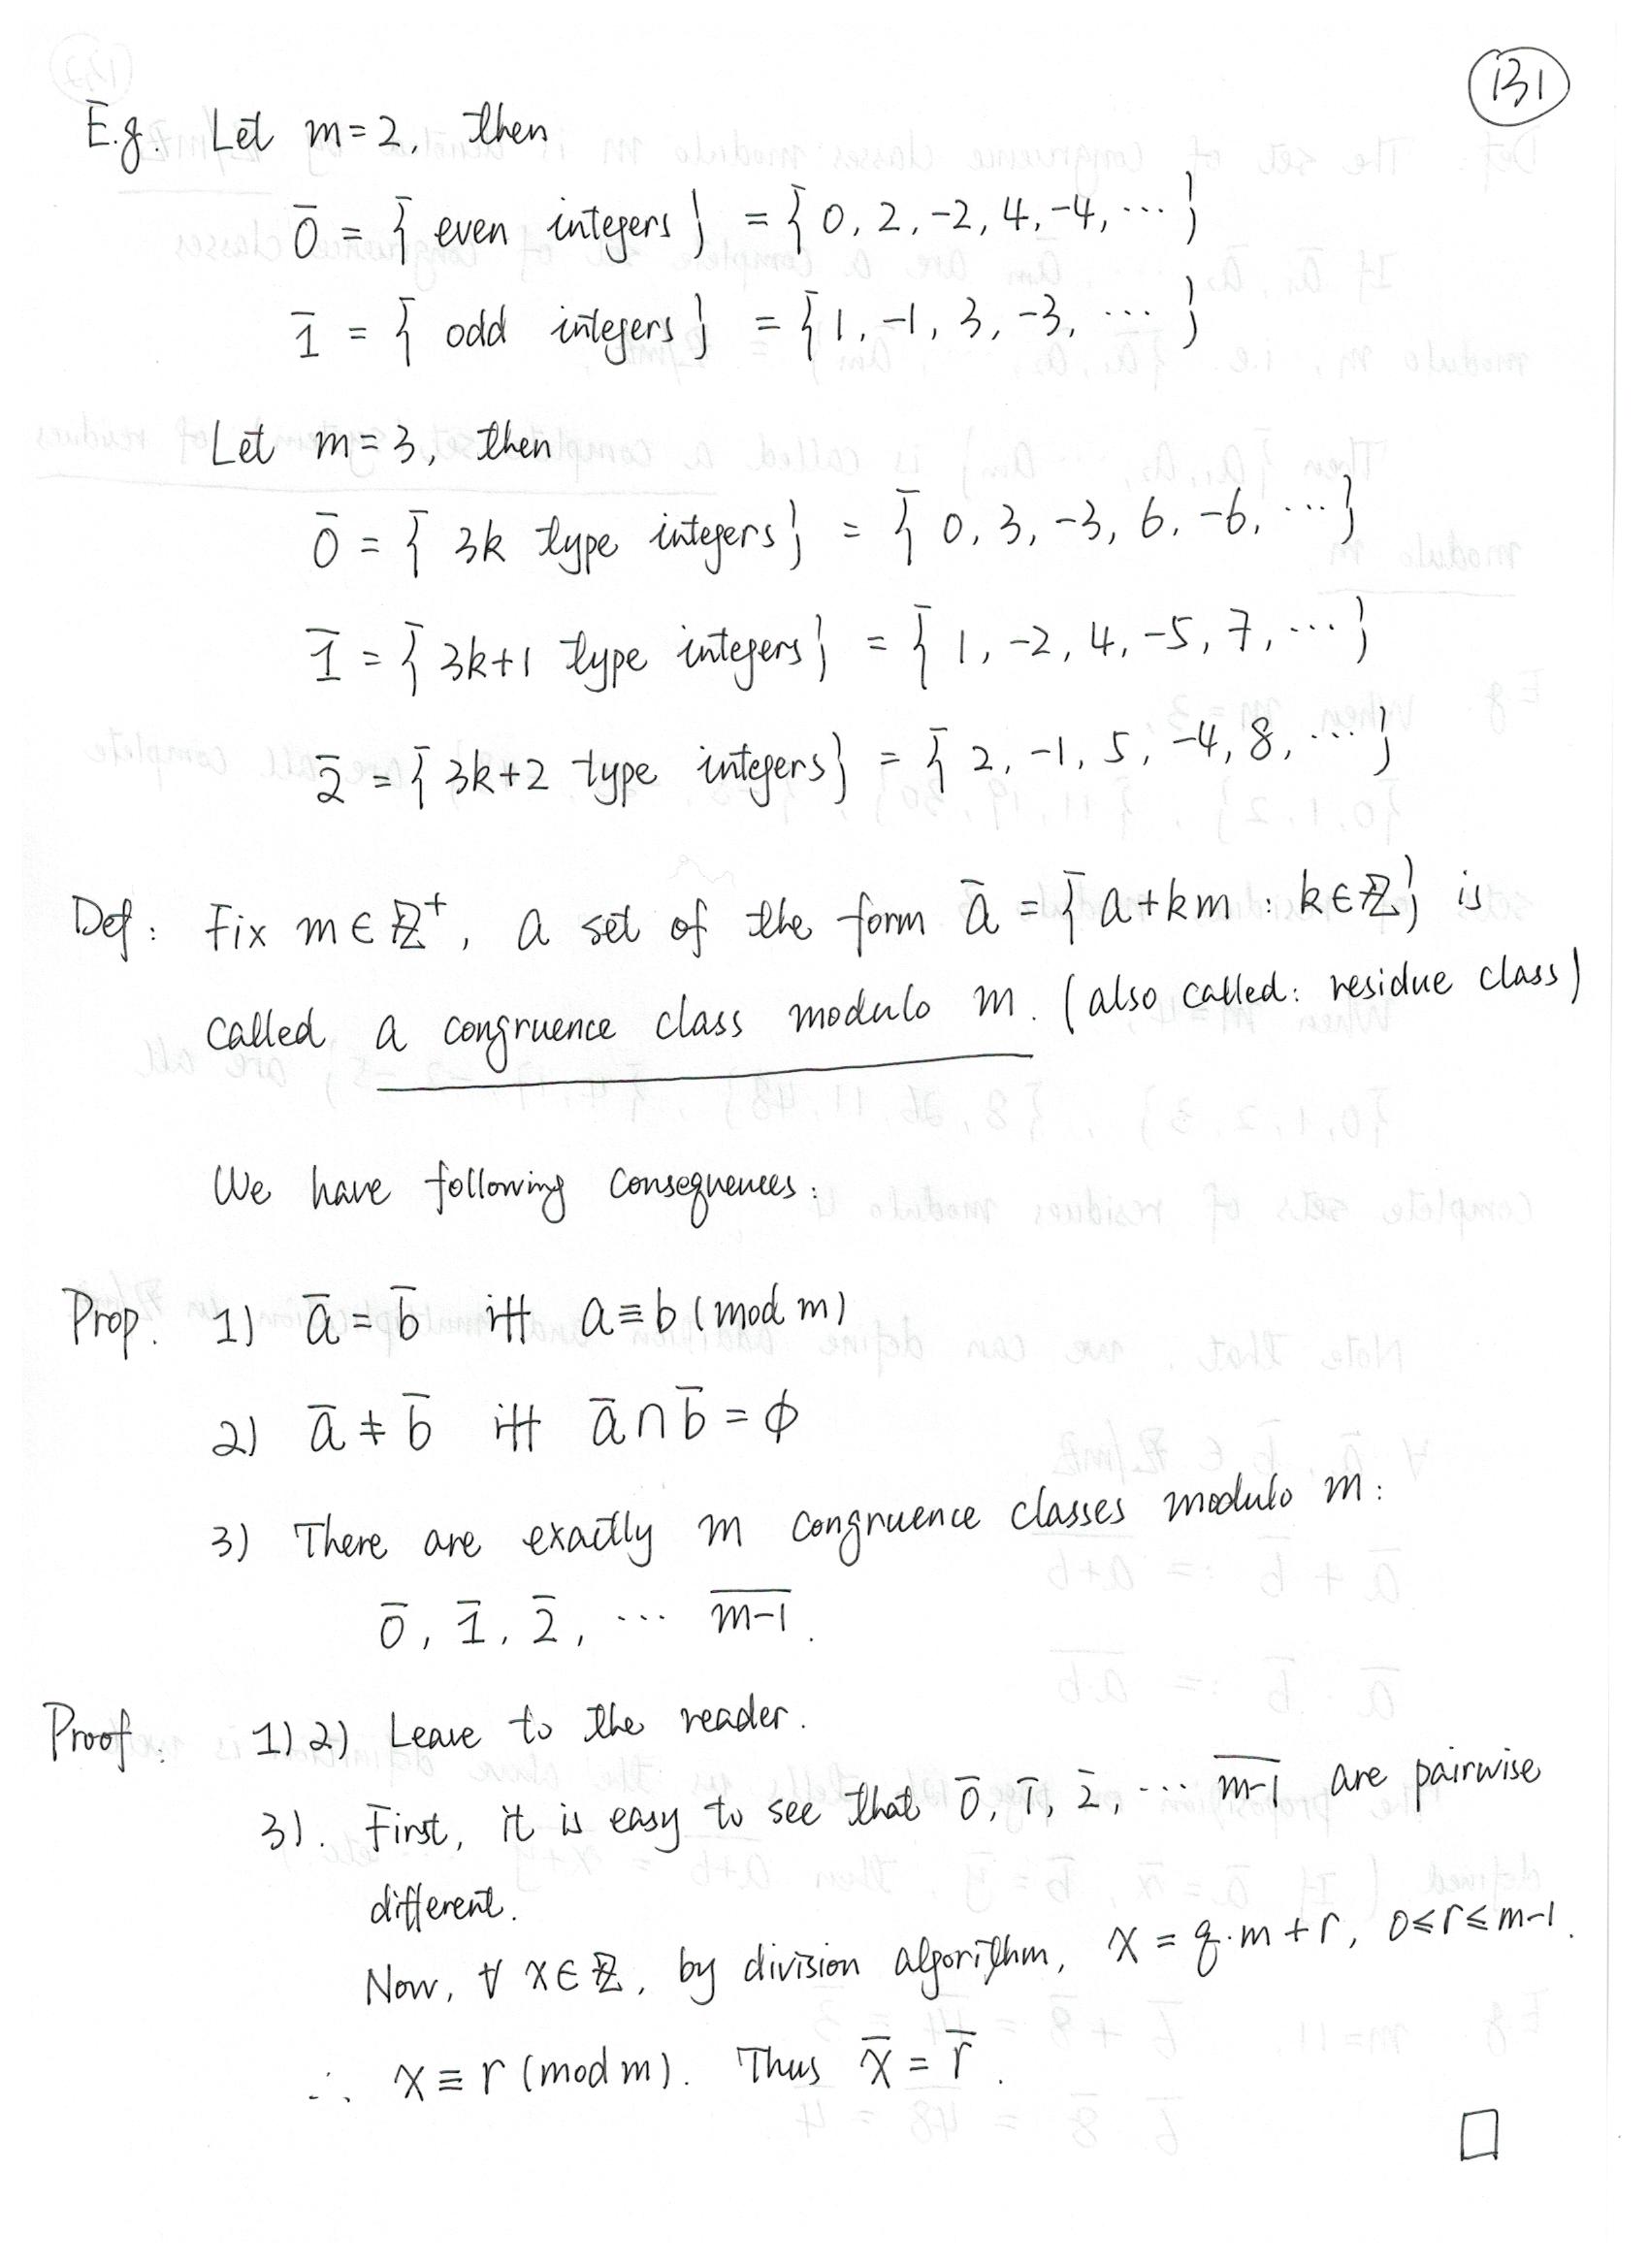 131
E.g. Let m=2, then
0̄ = { even integers } = { 0, 2, -2, 4, -4, ⋯ }
1̄ = { odd integers } = { 1, -1, 3, -3, ⋯ }
Let m=3, then
0̄ = { 3k type integers } = { 0, 3, -3, 6, -6, ⋯ }
1̄ = { 3k+1 type integers } = { 1, -2, 4, -5, 7, ⋯ }
2̄ = { 3k+2 type integers } = { 2, -1, 5, -4, 8, ⋯ }
Def: Fix m∈ℤ⁺, a set of the form ā = { a+km : k∈ℤ } is
called a congruence class modulo m. (also called: residue class)
We have following consequences:
Prop. 1) ā = b̄ iff a≡b (mod m)
2) ā ≠ b̄ iff ā∩b̄ = ϕ
3) There are exactly m congruence classes modulo m:
0̄, 1̄, 2̄, ⋯ \overline{m-1}.
Proof: 1) 2) Leave to the reader.
3). First, it is easy to see that 0̄, 1̄, 2̄, ⋯ \overline{m-1} are pairwise
different.
Now, ∀ x∈ℤ, by division algorithm, x = q·m+r, 0≤r≤m-1.
∴ x≡r (mod m). Thus x̄ = r̄.
□